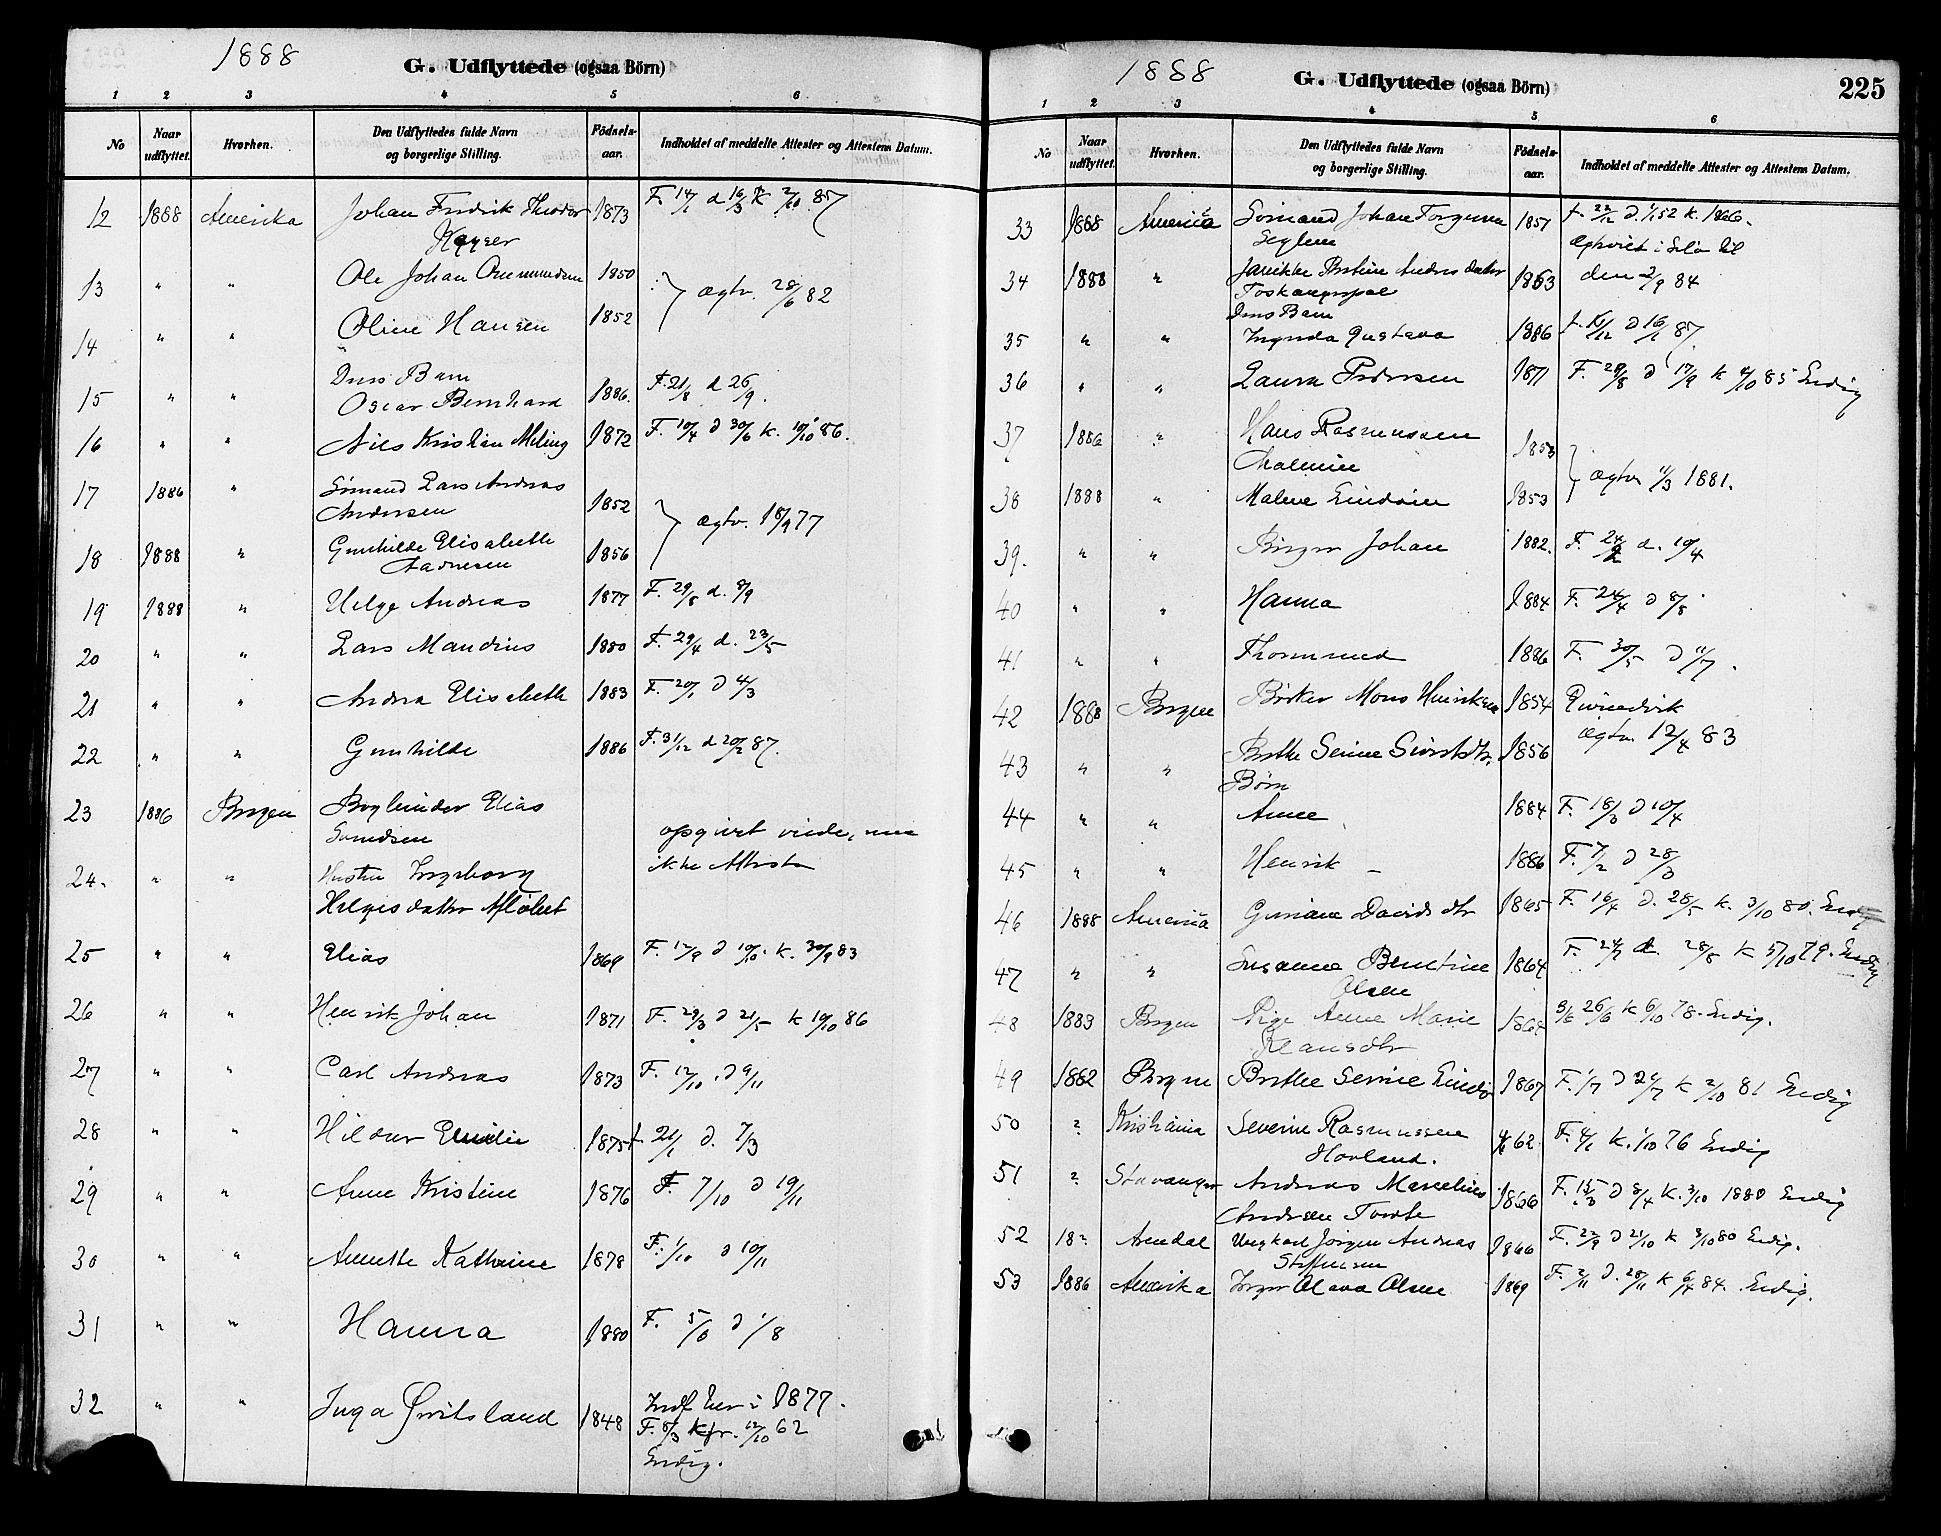 1888
G. Udflyttede (ogsaa Börn)
1 2 3 4 5 6
No
Naar udflyttet.
Hvorhen.
Den Udflyttedes fulde Navn og borgerlige Stilling.
Födsels-aar.
Indholdet af meddelte Attester og Attestens Datum.
12 1888 Amerika Johan Fredrik Theodor 1873 F. 14/1 d 16/3 K 2/10 87
Kayser
13 " " Ole Johan 1850
ægtv. 28/6 82
14 " " Oline Hansen 1852
Dres Barn
15 " " Oscar Bernhard 1886. F. 21/8 d 26/9.
16 " " Nils Kristian Meling 1872 F. 10/4 d 30/6 K. 10/10 86.
17 1886 " Sömand Lars Andreas
Andersen 1852
ægtv. 18/9 77
18 1888 " Gunhilde Elisabeth 1856
Aadnesen
19 1888 " Helge Andreas 1877 F. 29/8 d. 8/9
20 " " Lars Mandius 1880 F. 29/4 d. 23/5
21 " " Andrea Elisabeth 1883 F. 20/1 d 4/3
22 " " Gunhilde 1886 F. 31/12 d 20/2 87.
23 1886 Bergen Bogbinder Elias
Svendsen opgivet vide,
ikke Attester
24. " " Hustru Ingeborg
Helgesdatter
25 " " Elias 1869 F. 12/9 d 10/10. K. 30/9 83
26 " " Henrik Johan 1871 F. 29/3 d 21/5 K 10/10 86
27 " " Carl Andreas 1873 F. 12/10. d 9/11
28 " " Hildur Emilie 1875 f 21/1 d. 7/3
29 " " Anne Kristine 1876 F. 7/10 d 19/11
30 " " Anette Kathrine 1878 F. 1/10 d 10/11
31 " " Hanna 1880 F. 5/6 d 1/8
32 " " Inga 1848 Indf her i 1877.
F. 8/3 Kfr. 12/10 62
Endig.
1888
G. Udflyttede (ogsaa Börn)
225
1 2 3 4 5 6
No
Naar udflyttet.
Hvorhen.
Den Udflyttedes fulde Navn og borgerlige Stilling.
Födsels-aar.
Indholdet af meddelte Attester og Attestens Datum.
33 1888 America Sömand Johan Torgersen 1851 f. 22/2 d. 1/5 52 K. 1866.
Seglem ægteviet i til
34 1888 " Andersdatter 1863 den 2/9 84
Dres Barn
35 " " Gustava 1886 f. 15/12 d 16/1 87
36 " " Laura Pedersen 1871 F. 29/8 d 17/9 K 4/10 85 Endig
37 1886 " Hans Rasmussen
Malmin 1853
ægtv 11/3 1881.
38 1888 " Malene 1853
39. " " Birger Johan 1882. F. 24/2 d. 10/4
40 " " Hanna 1884 F. 24/4 d 8/8
41 " " Thormund 1886 F. 30/5 d 11/7.
42 1888 Bergen Mons Henriksen 1854
ægtv. 12/4 83
43 " " Berthe Serine 1856
Børn
44 " " Anne 1884 F. 18/3 d 10/4
45 " " Henrik 1886 F. 7/2 d 28/3
46 1888 America Davidsdtr 1865 F. 16/4 d. 28/5 K. 3/10 80. Endig
47 " " Susanne Bentine 1864 F. 24/7 d. 28/8 K 5/10 79. Endig
Olsen
48 1883 Bergen Pige Anne Marie 3/6 26/6 K 6/10 78. Endig.
Klausdtr
49 1882 Bergen Berthe Serine 1867 F. 1/7 d 24/7 K 2/10 81 Endig
50 " Kristiania Severine Rasmussen 62 F. 4/1 K. 1/10 76 Endig
Hovland.
51 " Stavanger Andreas Marselius 1866 F. 15/3 d 8/4 K. 3/10 1880 Endig
Andersen
52 18" Arendal Ungkarl Jörgen Andreas 1866 F. 22/9 d 21/10 K 3/10 80 Endig.
Steffensen
53 1886 Amerika Inger Olava Olsen 1869 F. 2/11 d. 28/11 K 6/4 84. Endig.